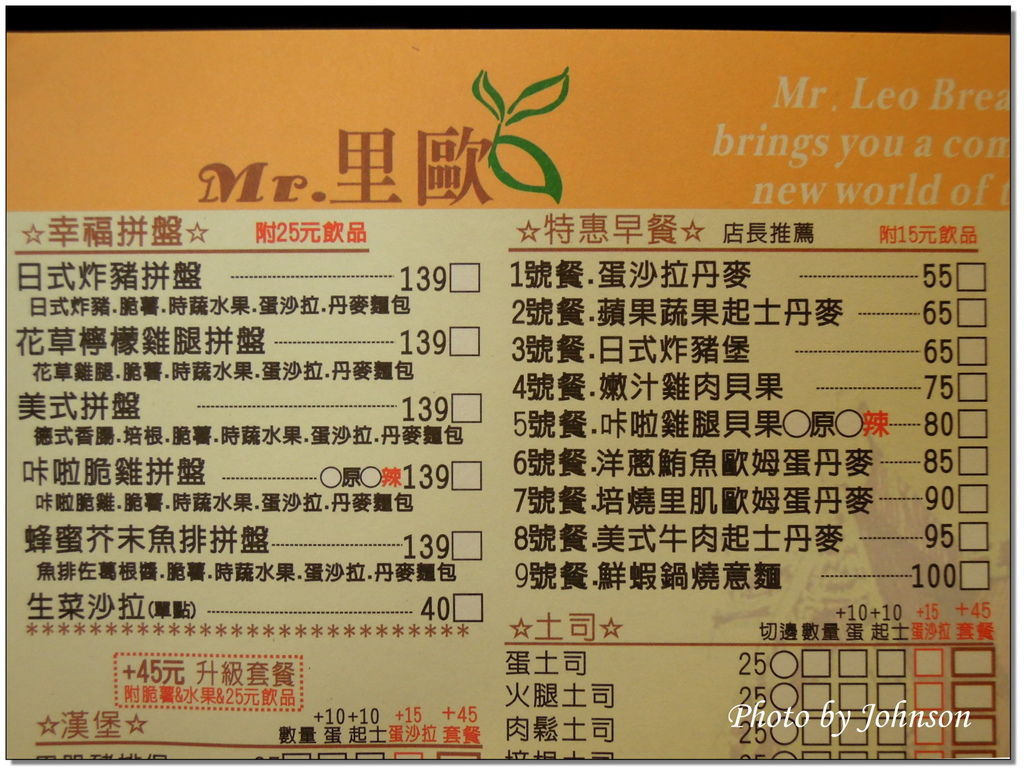 Mr.里歐
Mr. Leo Brea
brings you a com
new world of t
☆幸福拼盤☆ 附25元飲品
日式炸豬拼盤 139
日式炸豬.脆薯.時蔬水果.蛋沙拉.丹麥麵包
花草檸檬雞腿拼盤 139
花草雞腿.脆薯.時蔬水果.蛋沙拉.丹麥麵包
美式拼盤 139
德式香腸.培根.脆薯.時蔬水果.蛋沙拉.丹麥麵包
咔啦脆雞拼盤 ○原○辣139
咔啦脆雞.脆薯.時蔬水果.蛋沙拉.丹麥麵包
蜂蜜芥末魚排拼盤 139
魚排佐葛根醬.脆薯.時蔬水果.蛋沙拉.丹麥麵包
生菜沙拉(單點) 40
+45元 升級套餐
附脆薯&水果&25元飲品
☆漢堡☆
+10+10 +15 +45
數量 蛋 起士 蛋沙拉 套餐
☆特惠早餐☆ 店長推薦 附15元飲品
1號餐.蛋沙拉丹麥 55
2號餐.蘋果蔬果起士丹麥 65
3號餐.日式炸豬堡 65
4號餐.嫩汁雞肉貝果 75
5號餐.咔啦雞腿貝果○原○辣 80
6號餐.洋蔥鮪魚歐姆蛋丹麥 85
7號餐.培燒里肌歐姆蛋丹麥 90
8號餐.美式牛肉起士丹麥 95
9號餐.鮮蝦鍋燒意麵 100
+10+10 +15 +45
☆土司☆ 切邊 數量 蛋 起士 蛋沙拉 套餐
蛋土司 25
火腿土司 25
肉鬆土司 25
Photo by Johnson